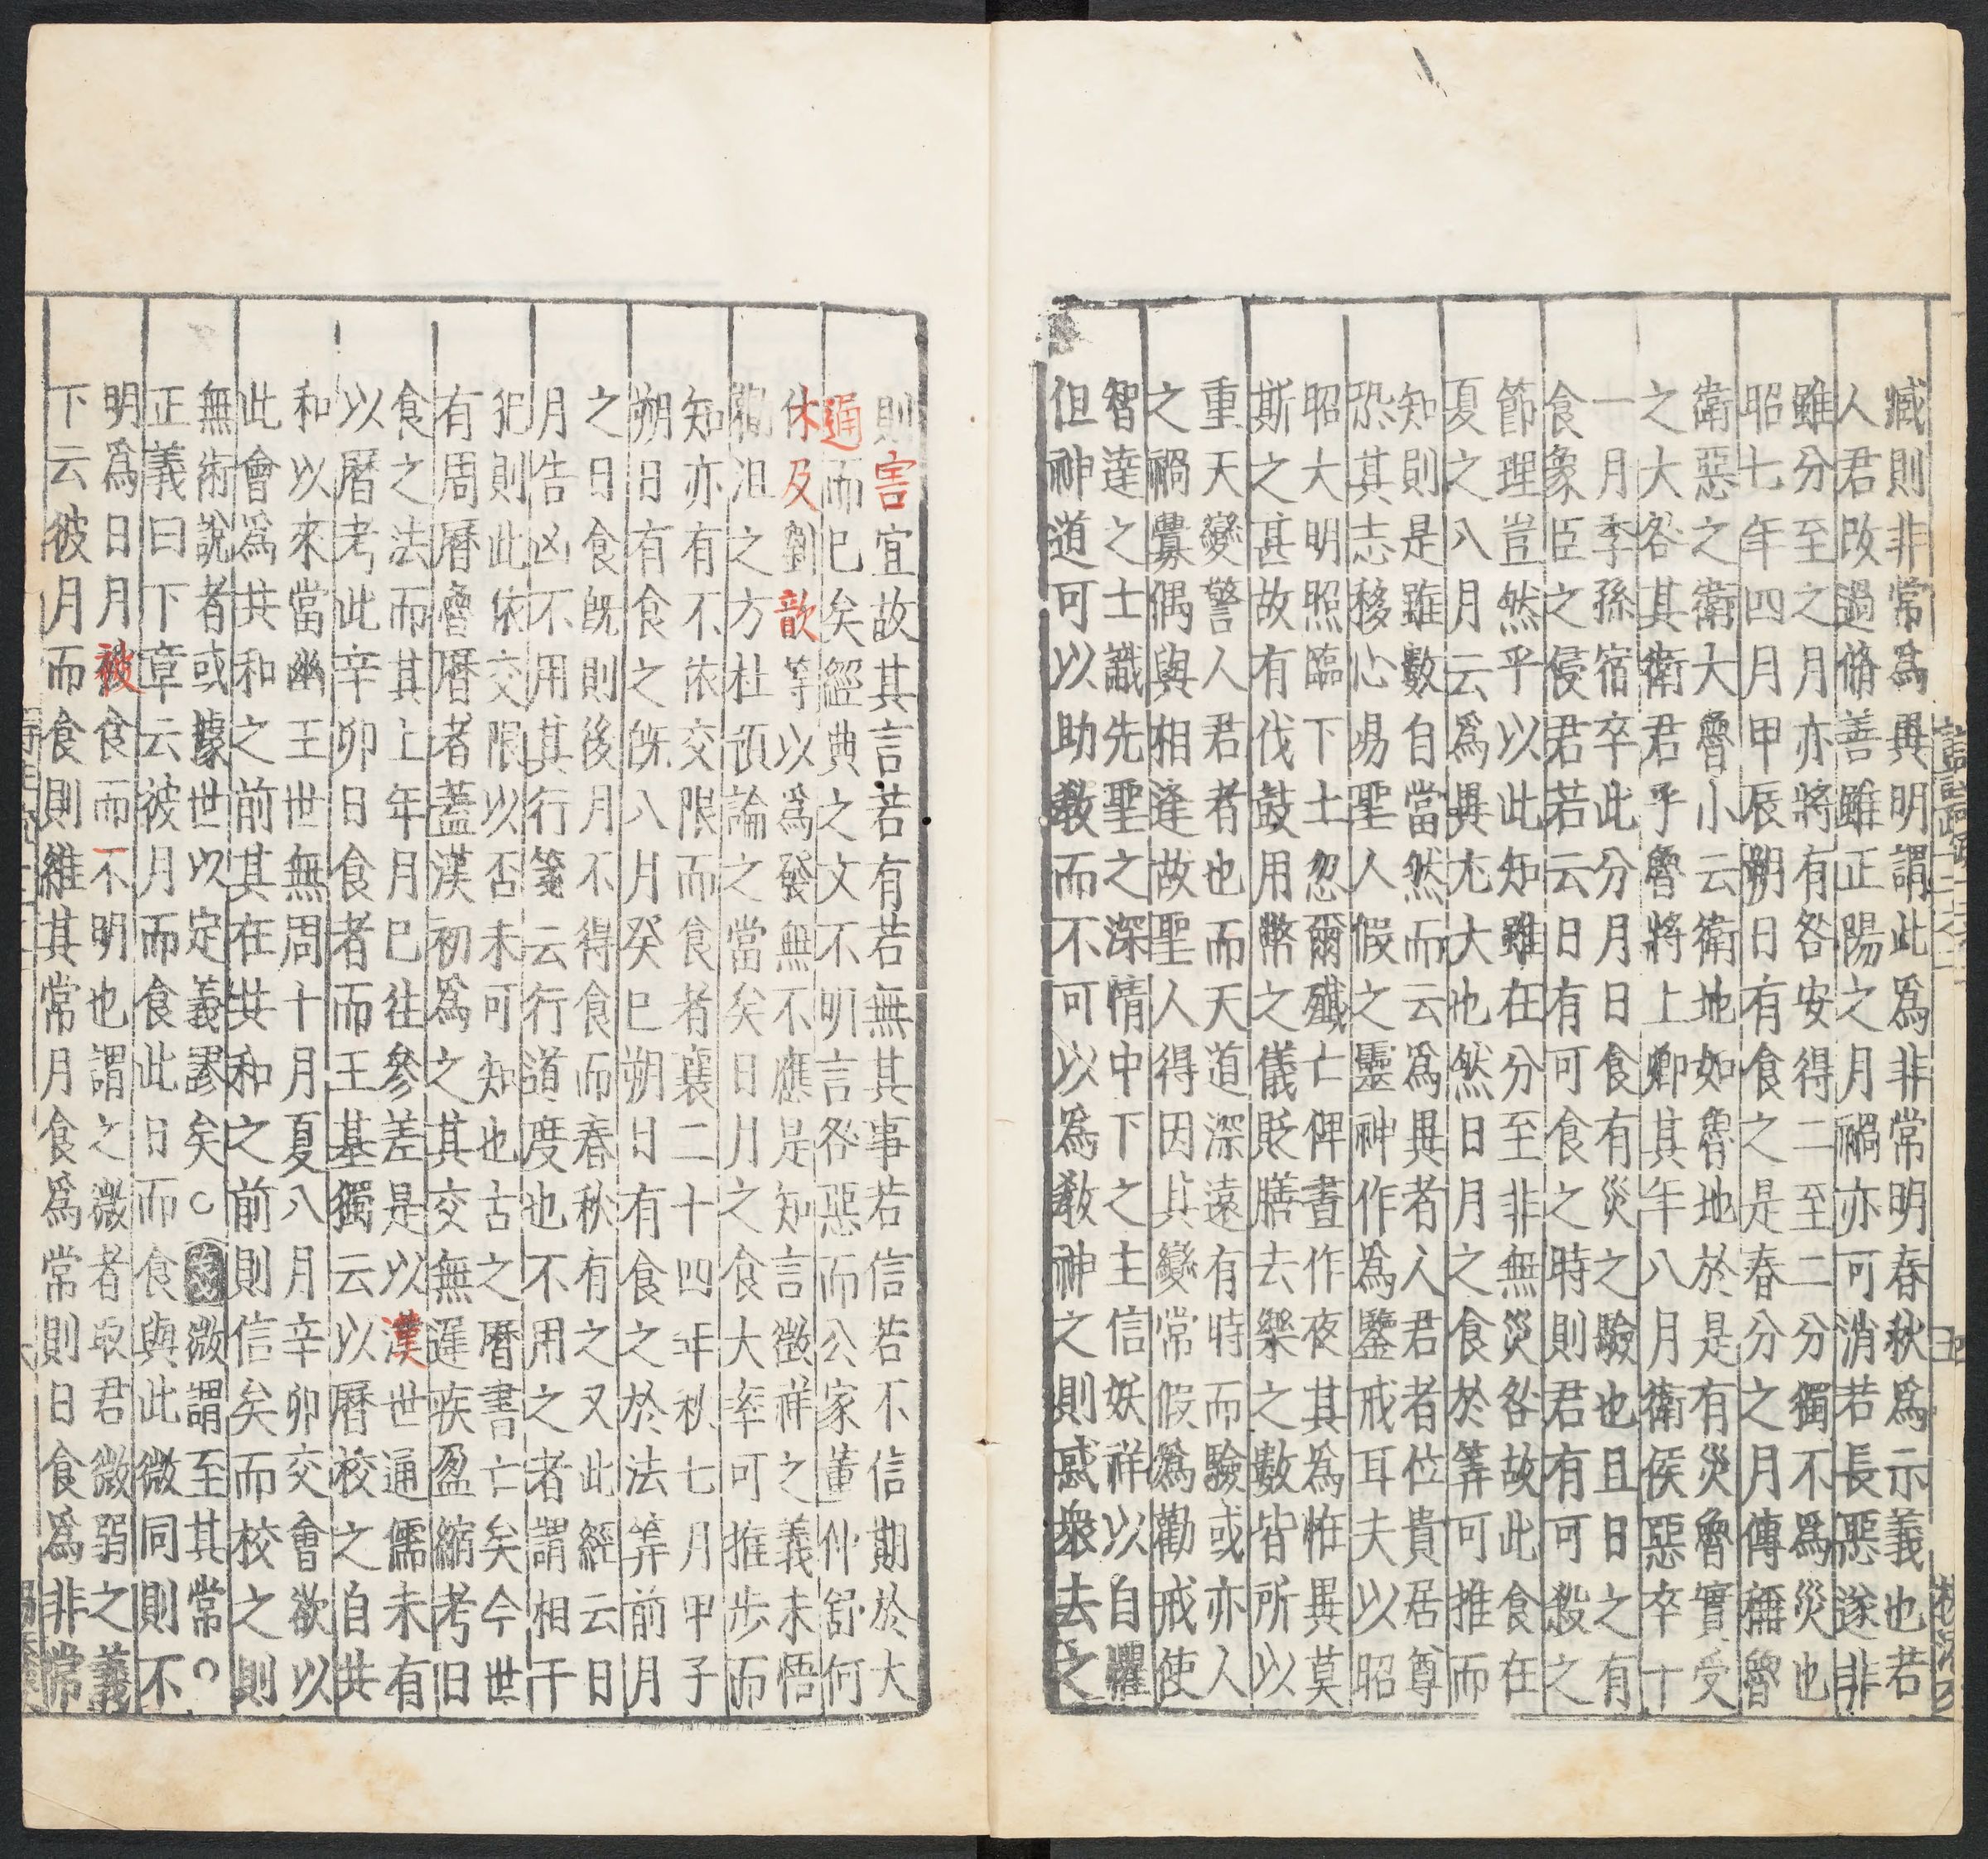 臧則非常為異明謂此為非常明春秋為示義也若
人君改過脩善雖正陽之月禍亦可消若長惡遂非
雖分至之月亦將有咎安得二至二分獨不為災也
昭七年四月甲辰朔日有食之是春分之月傳稱魯
衛惡之衛大魯小云衛地如魯地於是有災魯實受
之大咎其衛君乎魯將上卿其年八月衛侯惡卒十
一月季孫宿卒此分月日食有災之驗也且日之有
食象臣之侵君若云日有可食之時則君有可殺之
節理豈然乎以此知雖在分至非無災咎故此食在
夏之八月云為異尤大也然日月之食於筭可推而
知則是雖數自當然而云為異者人君者位貴居尊
恐其志移心易聖人假之靈神作為鑒戒耳夫以昭
昭大明照臨下土忽爾殲亡俾晝作夜其為恠異莫
斯之甚故有伐鼓用幣之儀貶膳去樂之數皆所以
重天變警人君者也而天道深遠有時而驗或亦人
之禍釁偶與相逢故聖人得因其變常假為勸戒使
智達之士識先聖之深情中下之主信妖祥以自懼
但神道可以助教而不可以為教神之則惑衆去之
則害宜故其言若有若無其事若信若不信期於大
通而已矣經典之文不明言咎惡而公家董仲舒何
休及劉歆等以為發無不應是知言徵祥之義未悟
勸沮之方杜預論之當矣日月之食大率可推步而
知亦有不依交限而食者襄二十四年秋七月甲子
朔日有食之旣八月癸巳朔日有食之於法筭前月
之日食旣則後月不得食而春秋有之又此經云日
月告凶不用其行箋云行道度也不用之者謂相干
犯則此依交限以否未可知也古之曆書亡矣今世
有周曆魯曆者蓋漢初為之其交無遲疾盈縮考日
食之法而其上年月已往參差是以漢世通儒未有
以曆考此辛卯日食者而王基獨云以曆校之自共
和以來當幽王世無周十月夏八月辛卯交會欲以
此會為共和之前其在共和之前則信矣而校之則
無術說者或據世以定義謬矣○箋微謂至其常○
正義曰下章云彼月而食此日而食與此微同則不
明為日月被食而不明也謂之微者取君微弱之義
下云彼月而食則維其常月食為常則日食為非常